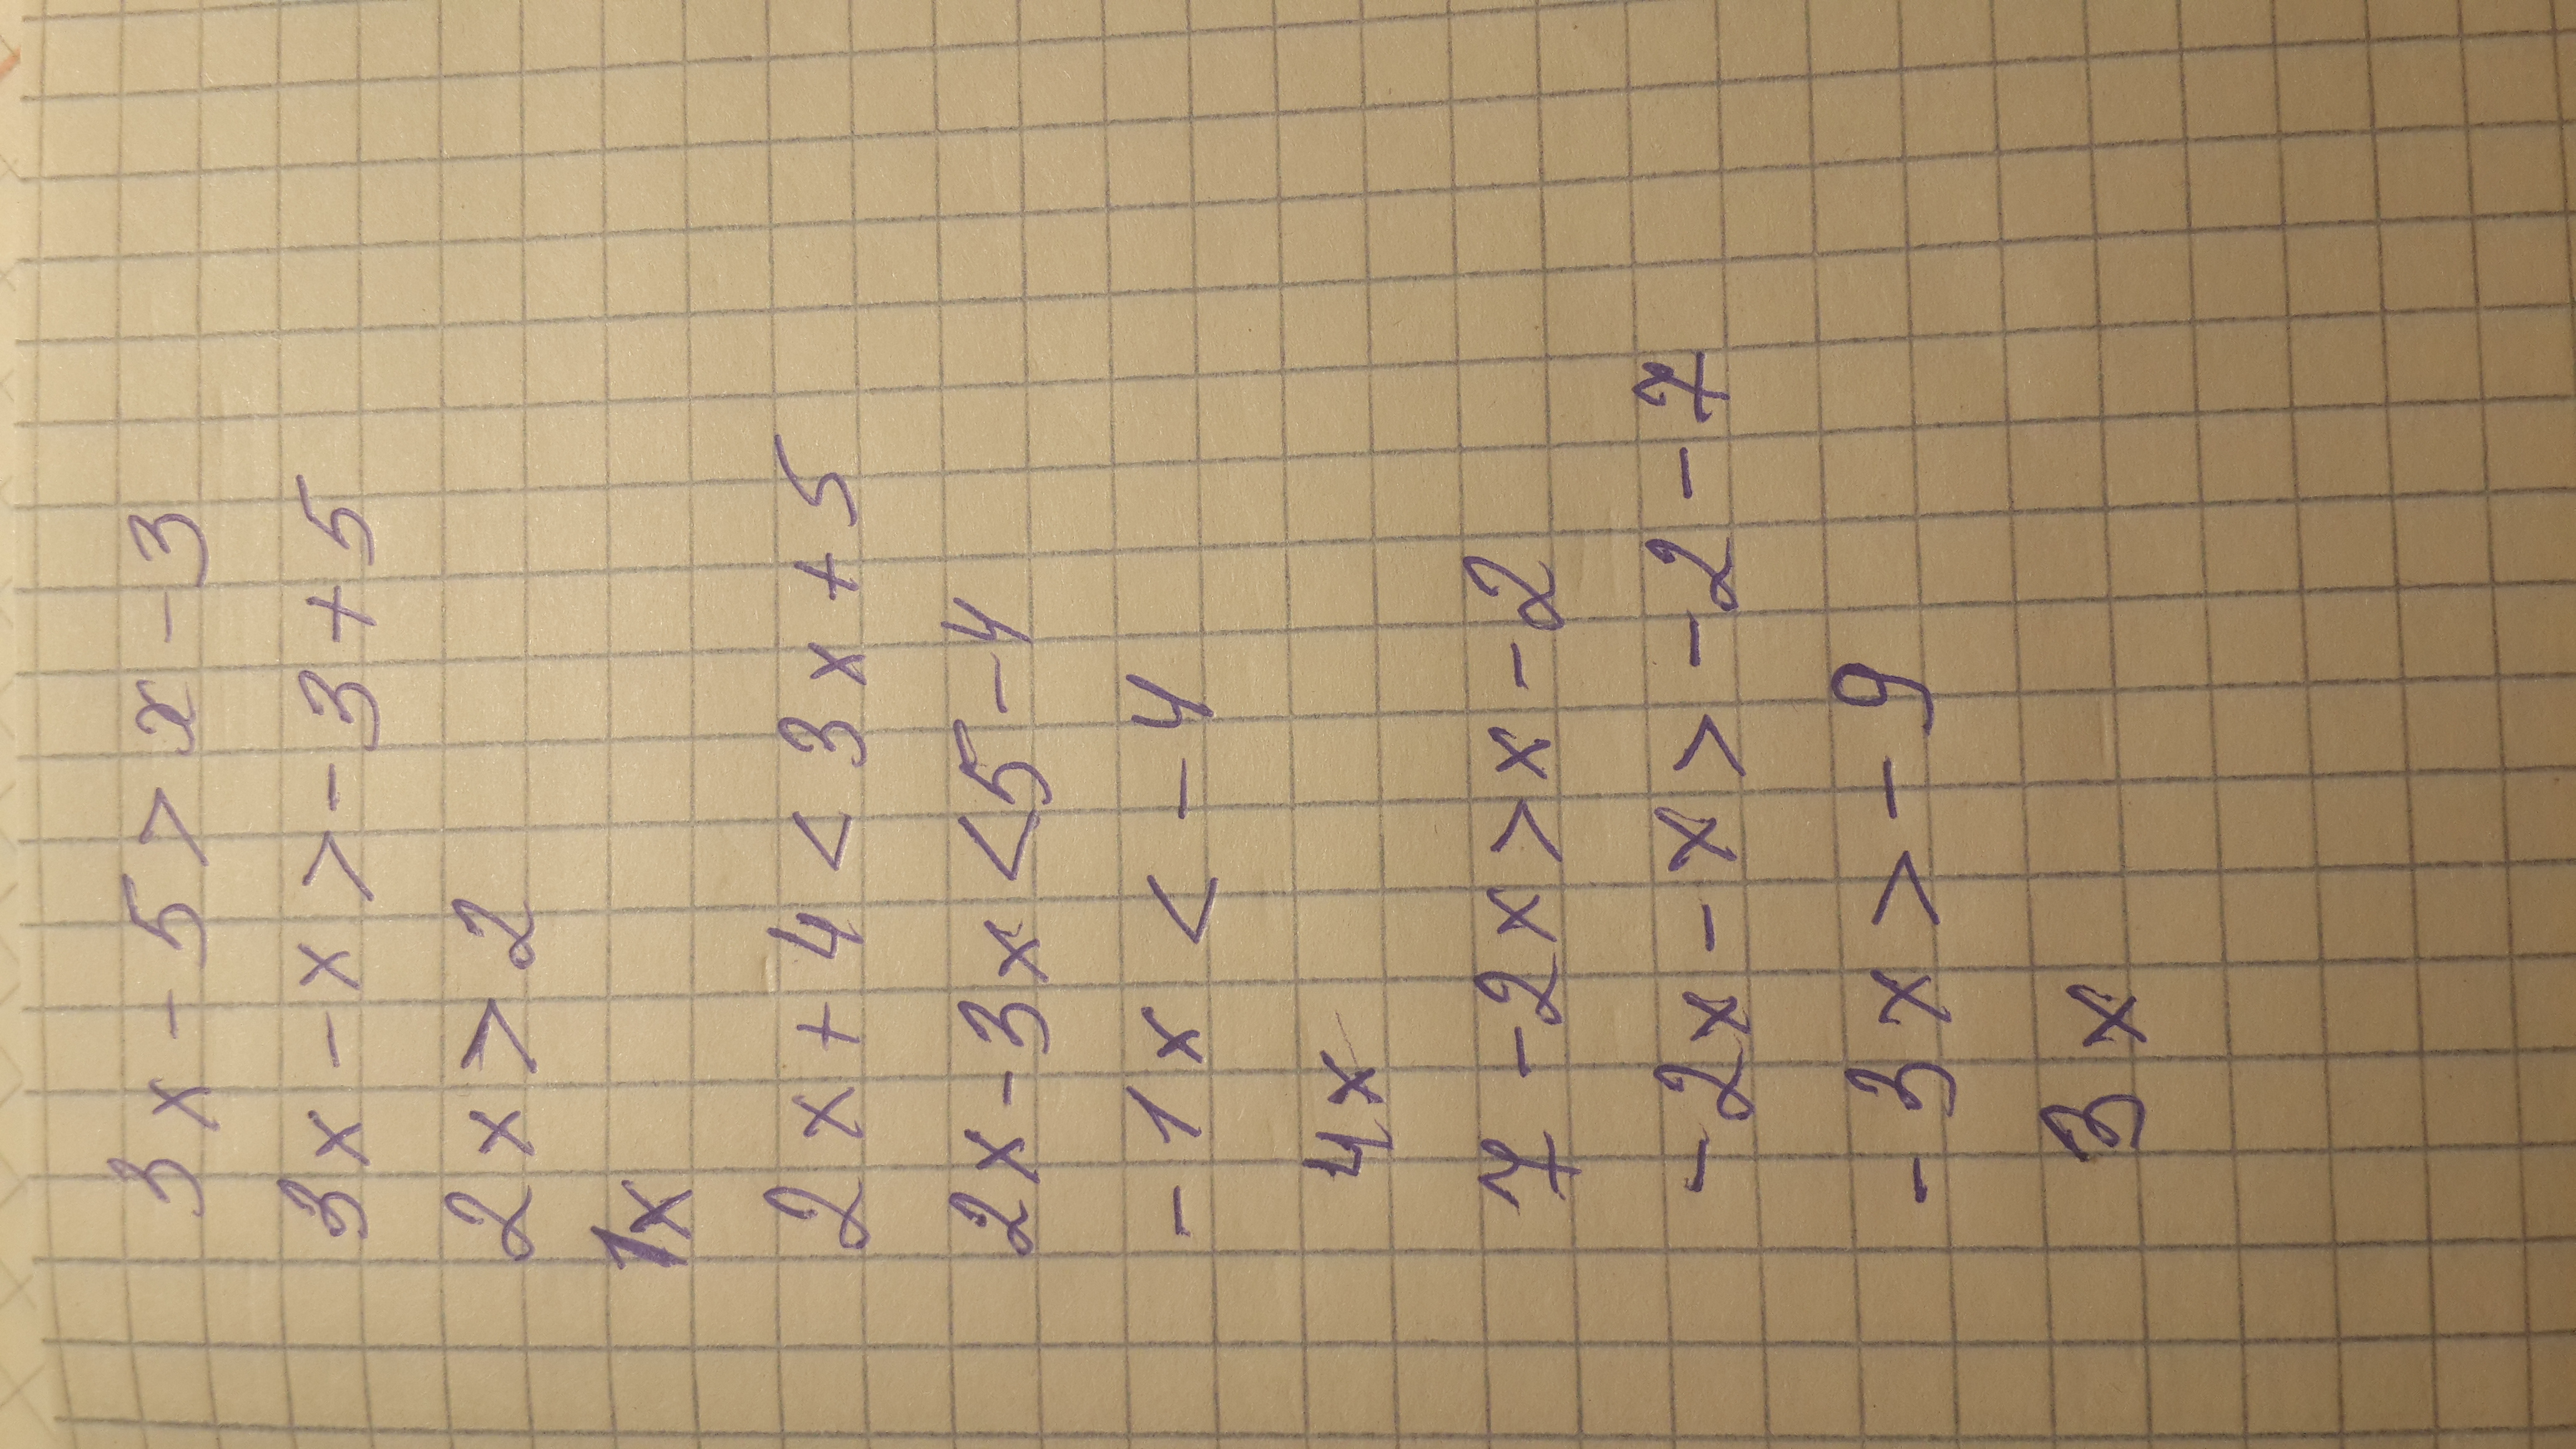 3x - 5 > x - 3
3x - x > - 3 + 5
2x > 2
1x
2x + 4 < 3x + 5
2x - 3x < 5 - 4
- 1x < - 4
4x
7 - 2x > x - 2
- 2x - x > - 2 - 7
- 3x > - 9
3x